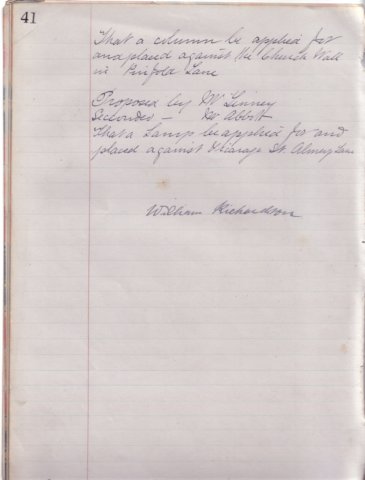 41
That a column be applied for
and placed against the Church Wall
in Pinfold Lane
Proposed by Mr Linney
Seconded — Mr Abbott
That a Lamp be applied for and
placed against Vicarage St. Lane
William Richardson